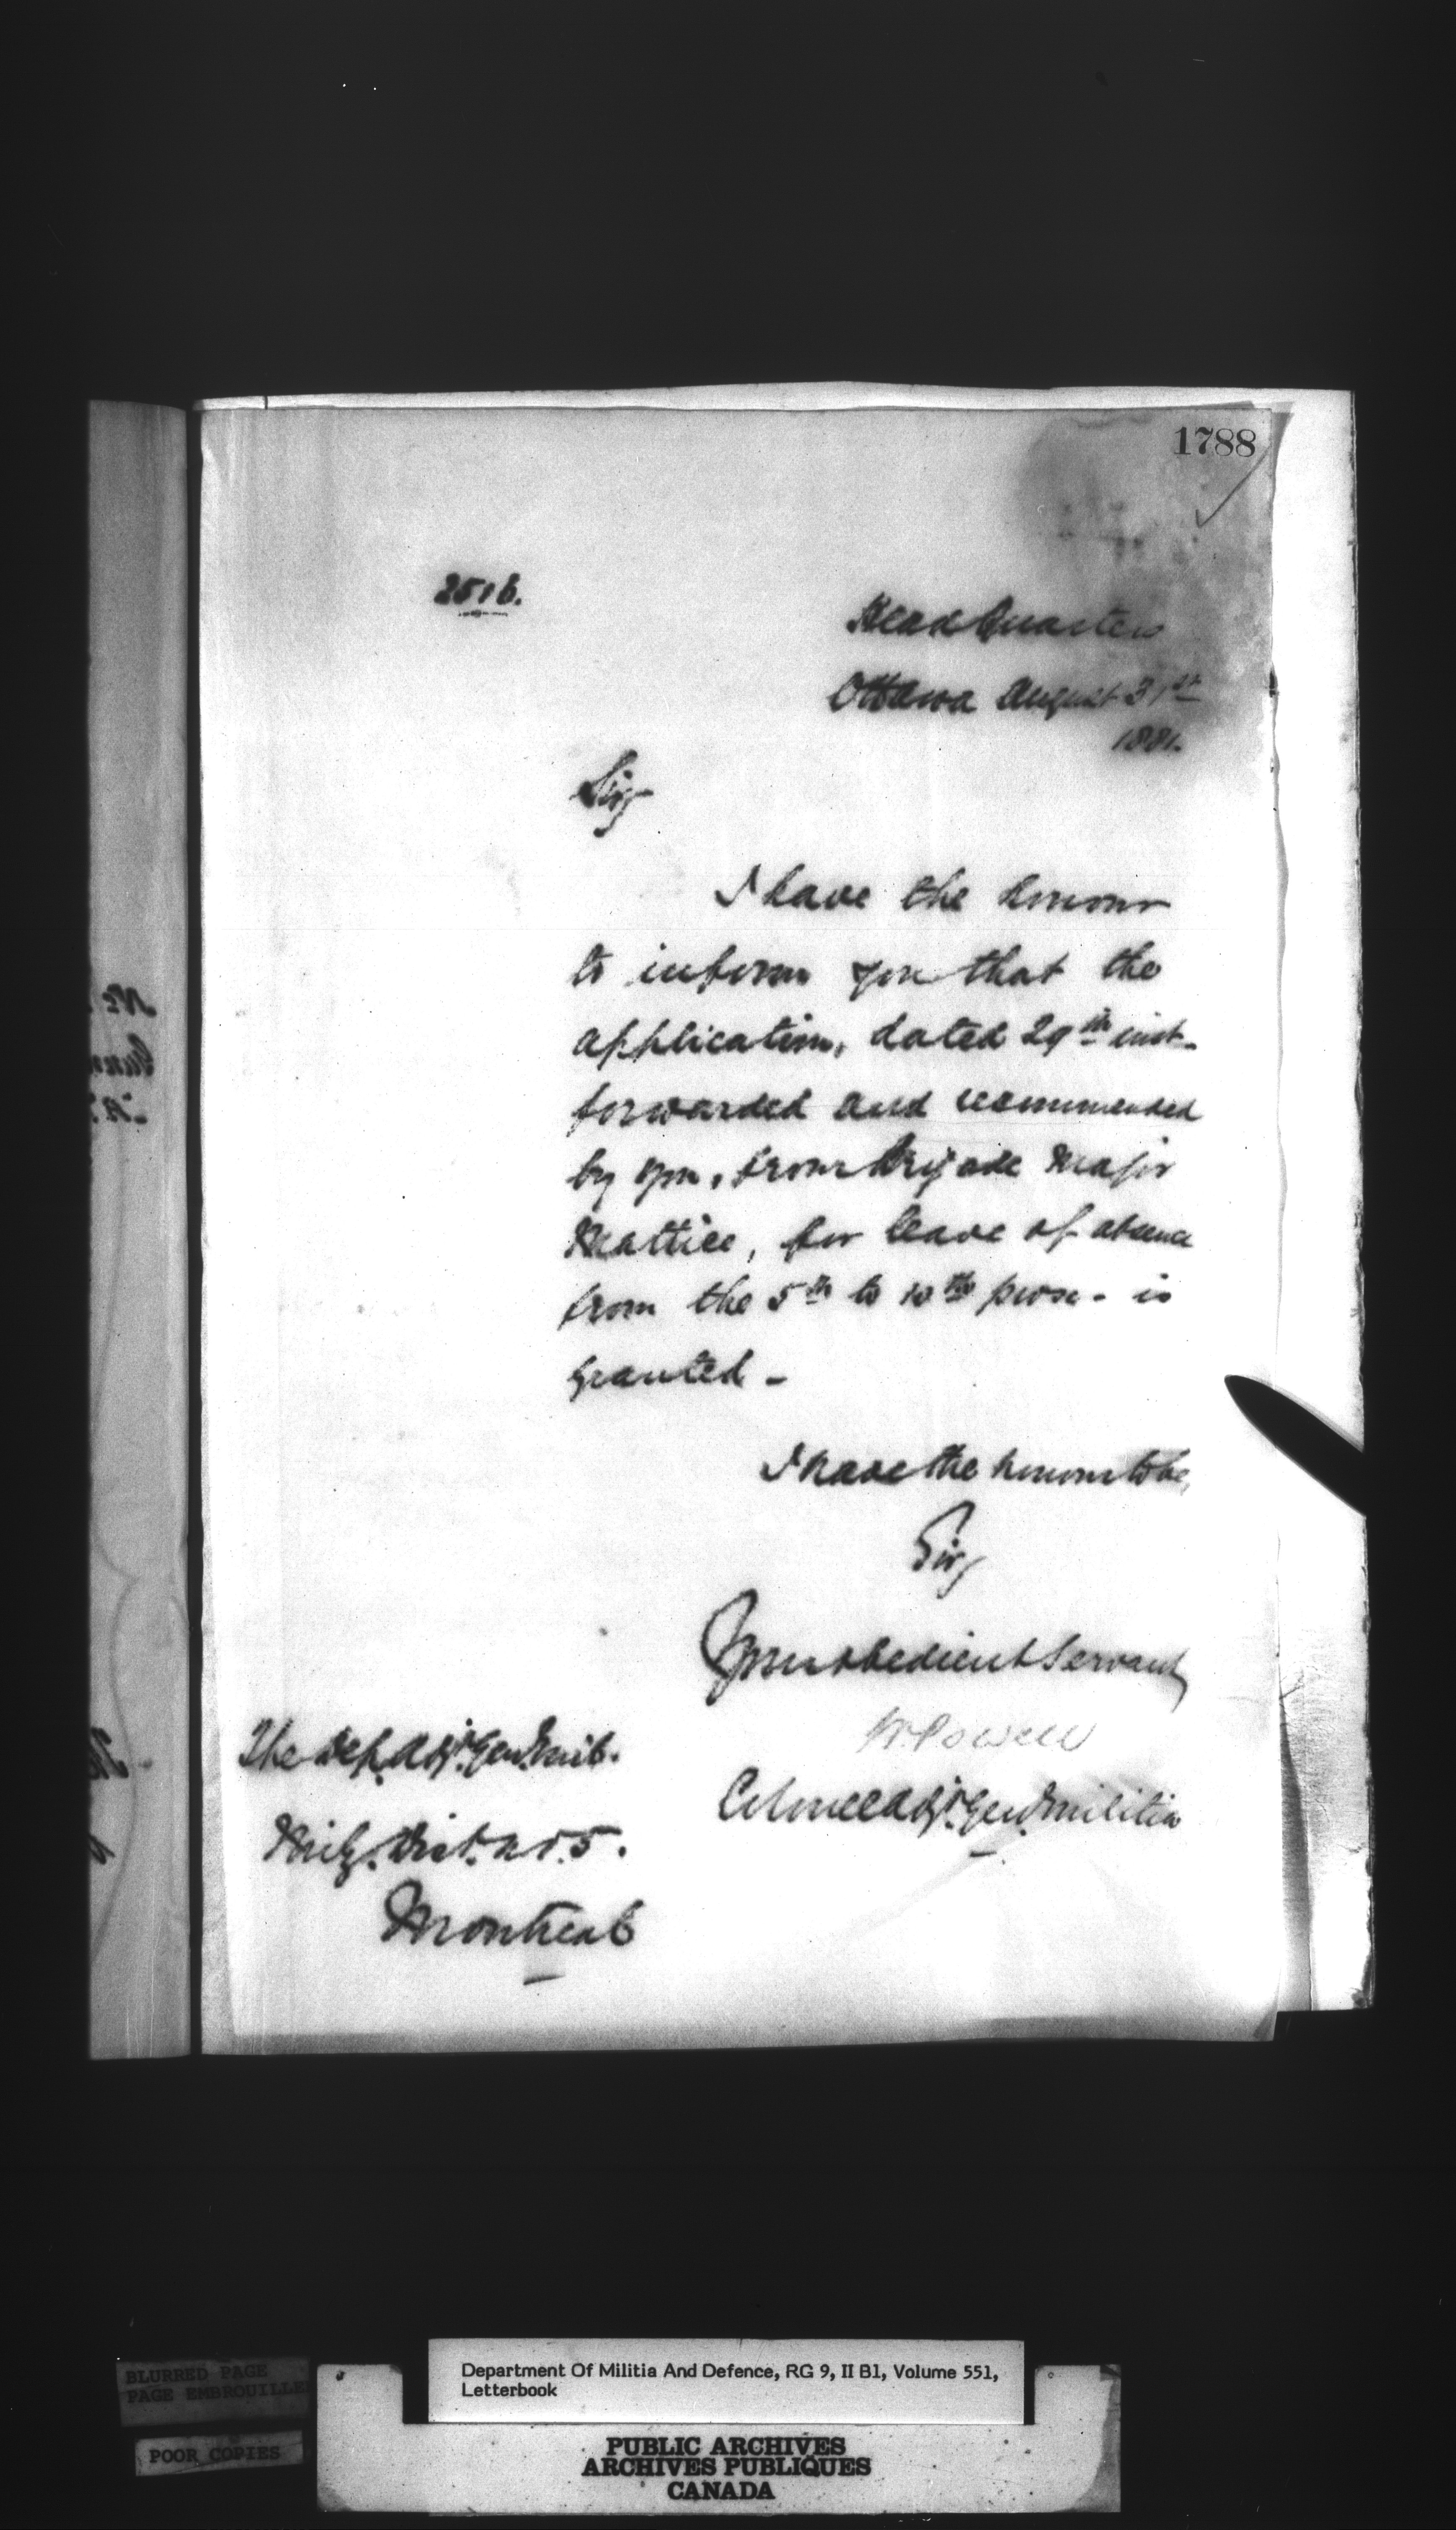 1788
2516.
Head Quarters
Ottawa August 31st
1881.
Sir,
I have the honour
to inform you that the
application, dated 29th inst.
forwarded and recommended
by you, from Brigade Major
Mattice, for leave of absence
from the 5th to 10th proxo. is
granted -
I have the honour to be,
Sir,
Your obedient Servant,
W. Powell
Colonel Adjt. Genl. Militia
The Dep. Adjt. Genl. Mil.
Mily. Dist. No. 5.
Montreal
BLURRED PAGE
PAGE EMBROUILLE
POOR COPIES
Department Of Militia And Defence, RG 9, II B1, Volume 551,
Letterbook
PUBLIC ARCHIVES
ARCHIVES PUBLIQUES
CANADA